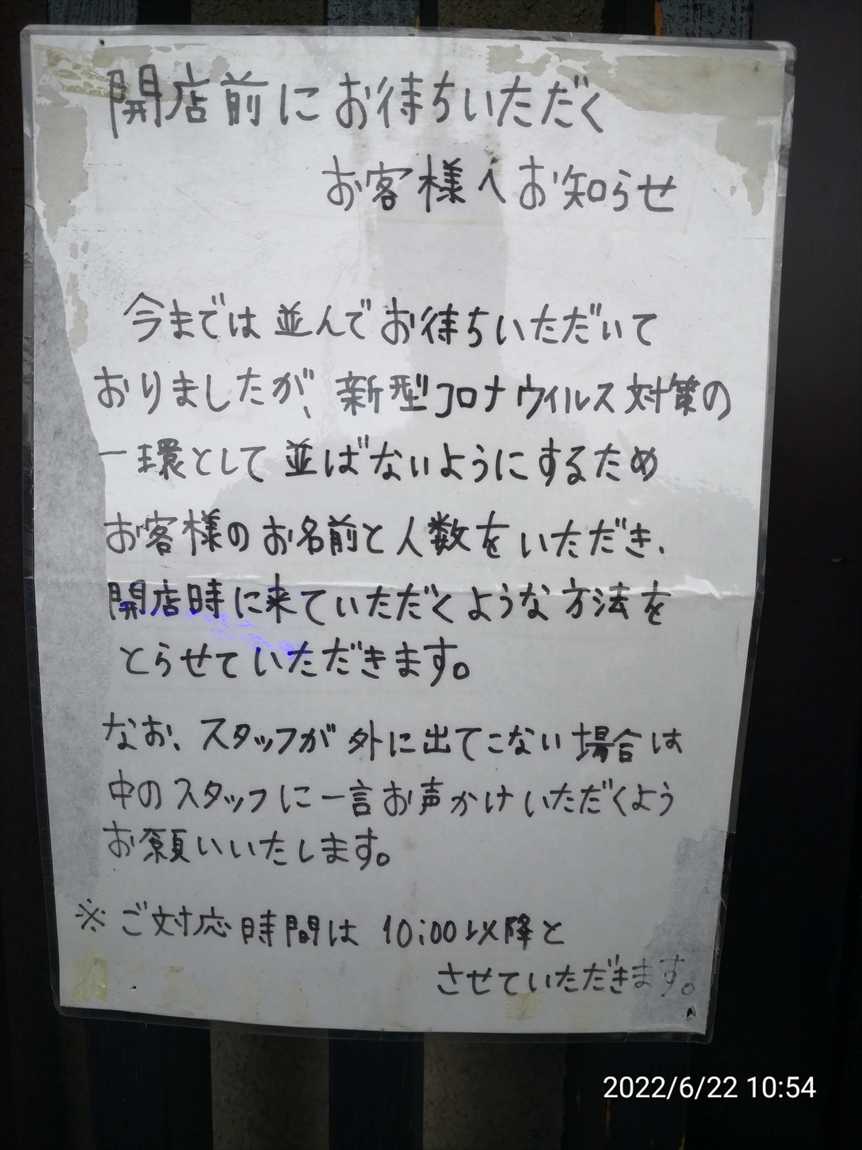 開店前にお待ちいただく
お客様へお知らせ
今までは並んでお待ちいただいて
おりましたが、新型コロナウィルス対策の
一環として並ばないようにするため
お客様のお名前と人数をいただき、
開店時に来ていただくような方法を
とらせていただきます。
なお、スタッフが外に出てこない場合は
中のスタッフに一言お声かけいただくよう
お願いいたします。
※ご対応時間は10:00以降と
させていただきます。
2022/6/22 10:54